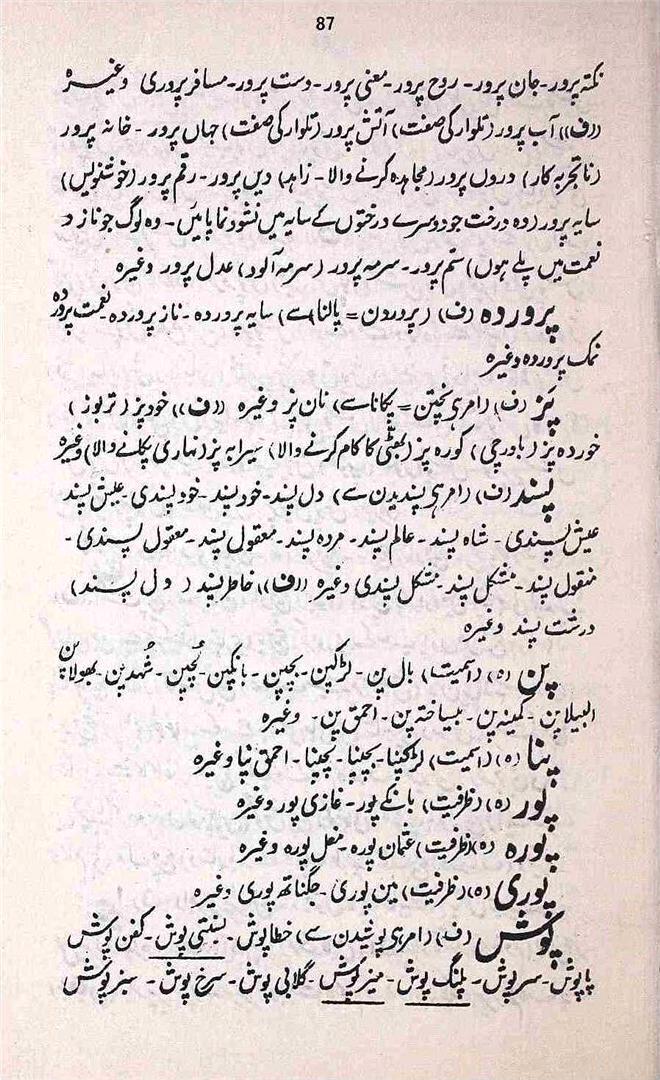 87
نکتہ پرور۔ جان پرور۔ روح پرور۔ معنی پرور۔ دست پرور۔ مسافر پروری وغیرہ
((ف)) آب پرور (تلوار کی صفت) آتش پرور (تلوار کی صفت) جہاں پرور۔ خانہ پرور
(ناتجربہ کار) دروں پرور (مجاہدہ کرنے والا۔ زاہد) دیں پرور۔ رقم پرور (خوشنویس)
سایہ پرور (وہ درخت جو دوسرے درختوں کے سایہ میں نشوونما پائیں۔ وہ لوگ جو ناز و
نعمت میں پلے ہوں) ستم پرور۔ سرمہ پرور (سرمہ آلود) عدل پرور وغیرہ
پروردہ (ف) (پروردن = پالنا سے) سایہ پروردہ۔ ناز پروردہ۔ نعمت پروردہ
نمک پروردہ وغیرہ
پَز (ف) (امر پختن = پکانا سے) نان پز وغیرہ ((ف)) خود پز (تربوز)
خوردہ پز (باورچی) کورہ پز (بھٹی کا کام کرنے والا) سیرابہ پز (نہاری پکانے والا) وغیرہ
پسند (ف) (امر پسندیدن سے) دل پسند۔ خود پسند۔ خود پسندی۔ عیش پسند
عیش پسندی۔ شاہ پسند۔ عالم پسند۔ مردہ پسند۔ معقول پسند۔ معقول پسندی۔
منقول پسند۔ مشکل پسند۔ مشکل پسندی وغیرہ ((ف)) خاطر پسند (دل پسند)
درشت پسند وغیرہ
پن (ہ) (اسمیت) بال پن۔ لڑکپن۔ بچپن۔ بانکپن۔ لُچپن۔ شُہد پن۔ بھولا پن
البیلا پن۔ کمینہ پن۔ بیساختہ پن۔ احمق پن۔ وغیرہ
پنا (ہ) (اسمیت) لڑکپنا۔ بچپنا۔ لچپنا۔ احمق پنا وغیرہ
پور (ہ) (ظرفیت) بانکے پور۔ غازی پور وغیرہ
پورہ (ہ) (ظرفیت) عثمان پورہ۔ مغل پورہ وغیرہ
پوری (ہ) (ظرفیت) مین پوری۔ جگناتھ پوری وغیرہ
پوش (ف) (امر پوشیدن سے) خطا پوش۔ بسنتی پوش۔ کفن پوش
پاپوش۔ سرپوش۔ پلنگ پوش۔ میز پوش۔ گلابی پوش۔ سرخ پوش۔ سبز پوش